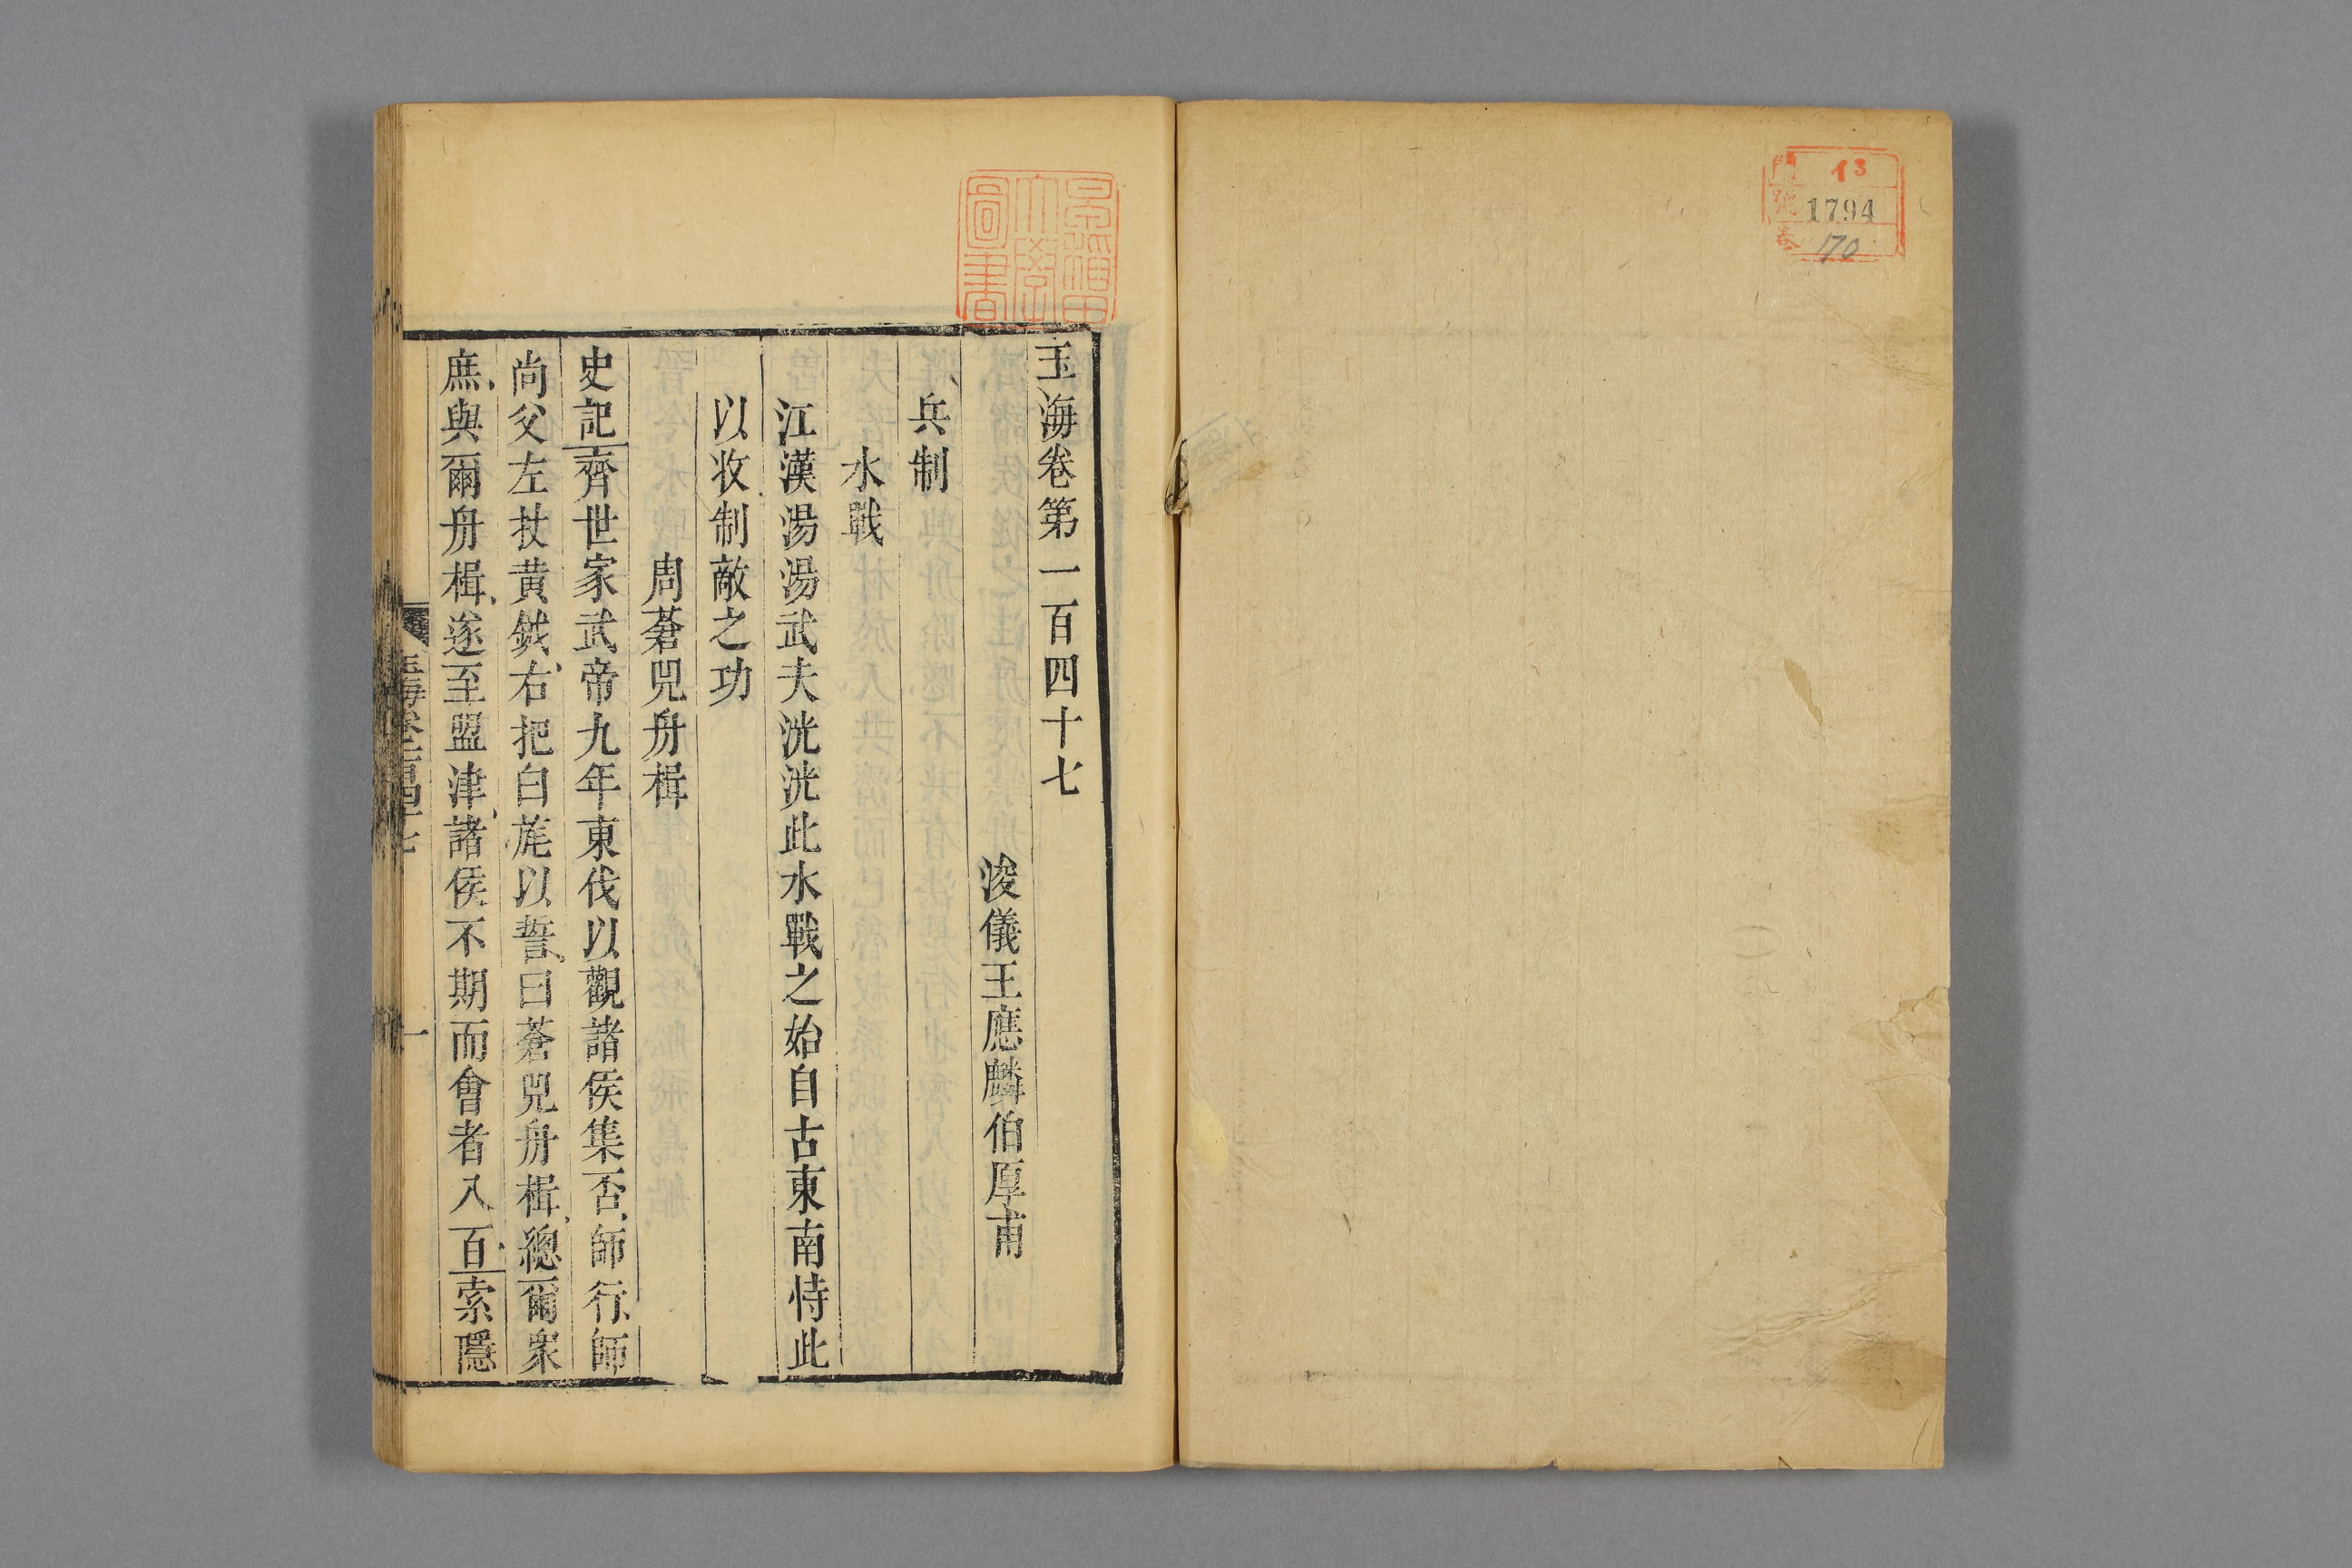 門 13
號 1794
卷 170
早稲田大學圖書
玉海卷第一百四十七
浚儀王應麟伯厚甫
兵制
水戰
江漢湯湯武夫洸洸此水戰之始自古東南恃此
以收制敵之功
周蒼兕舟楫
史記齊世家武帝九年東伐以觀諸侯集否師行師
尚父左扙黄鉞右把白旄以誓曰蒼兕舟楫總爾衆
庶與爾舟楫遂至盟津諸侯不期而會者八百索隱
玉海卷一百四十七
一